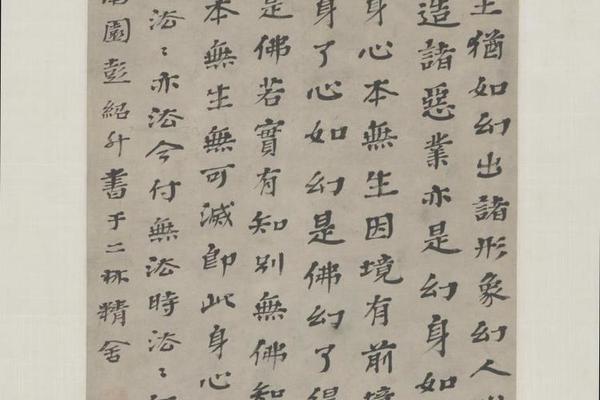 生猶如幻出諸形象幻人
造諸惡業亦是幻身如
身心本無生因境有前境
身了心如幻是佛幻了得
是佛若實有知別無佛智
本無生無可滅即此身心
法〻亦法今付無法時法〻
園彭紹升書于二林精舍